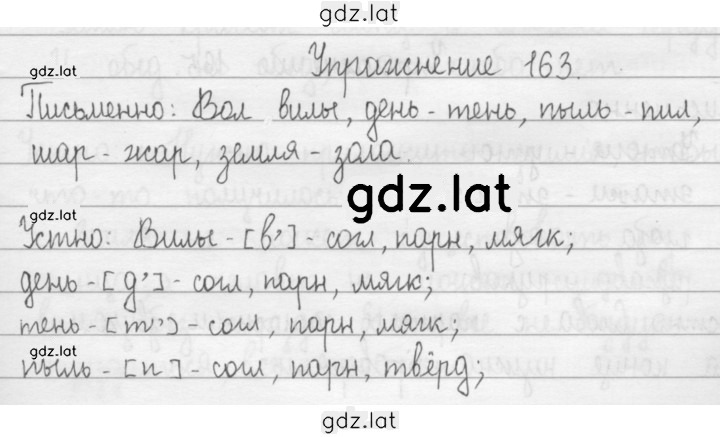 gdz.lat
gdz.lat
Упражнение 163.
Письменно: Вол вилы, день - тень, пыль - пил,
шар - жар, земля - зола.
gdz.lat
gdz.lat
Устно: Вилы - [в'] - согл, парн, мягк;
день - [д'] - согл, парн, мягк;
тень - [т'] - согл, парн, мягк;
gdz.lat
пыль - [п] - согл, парн, твёрд;
gdz.lat